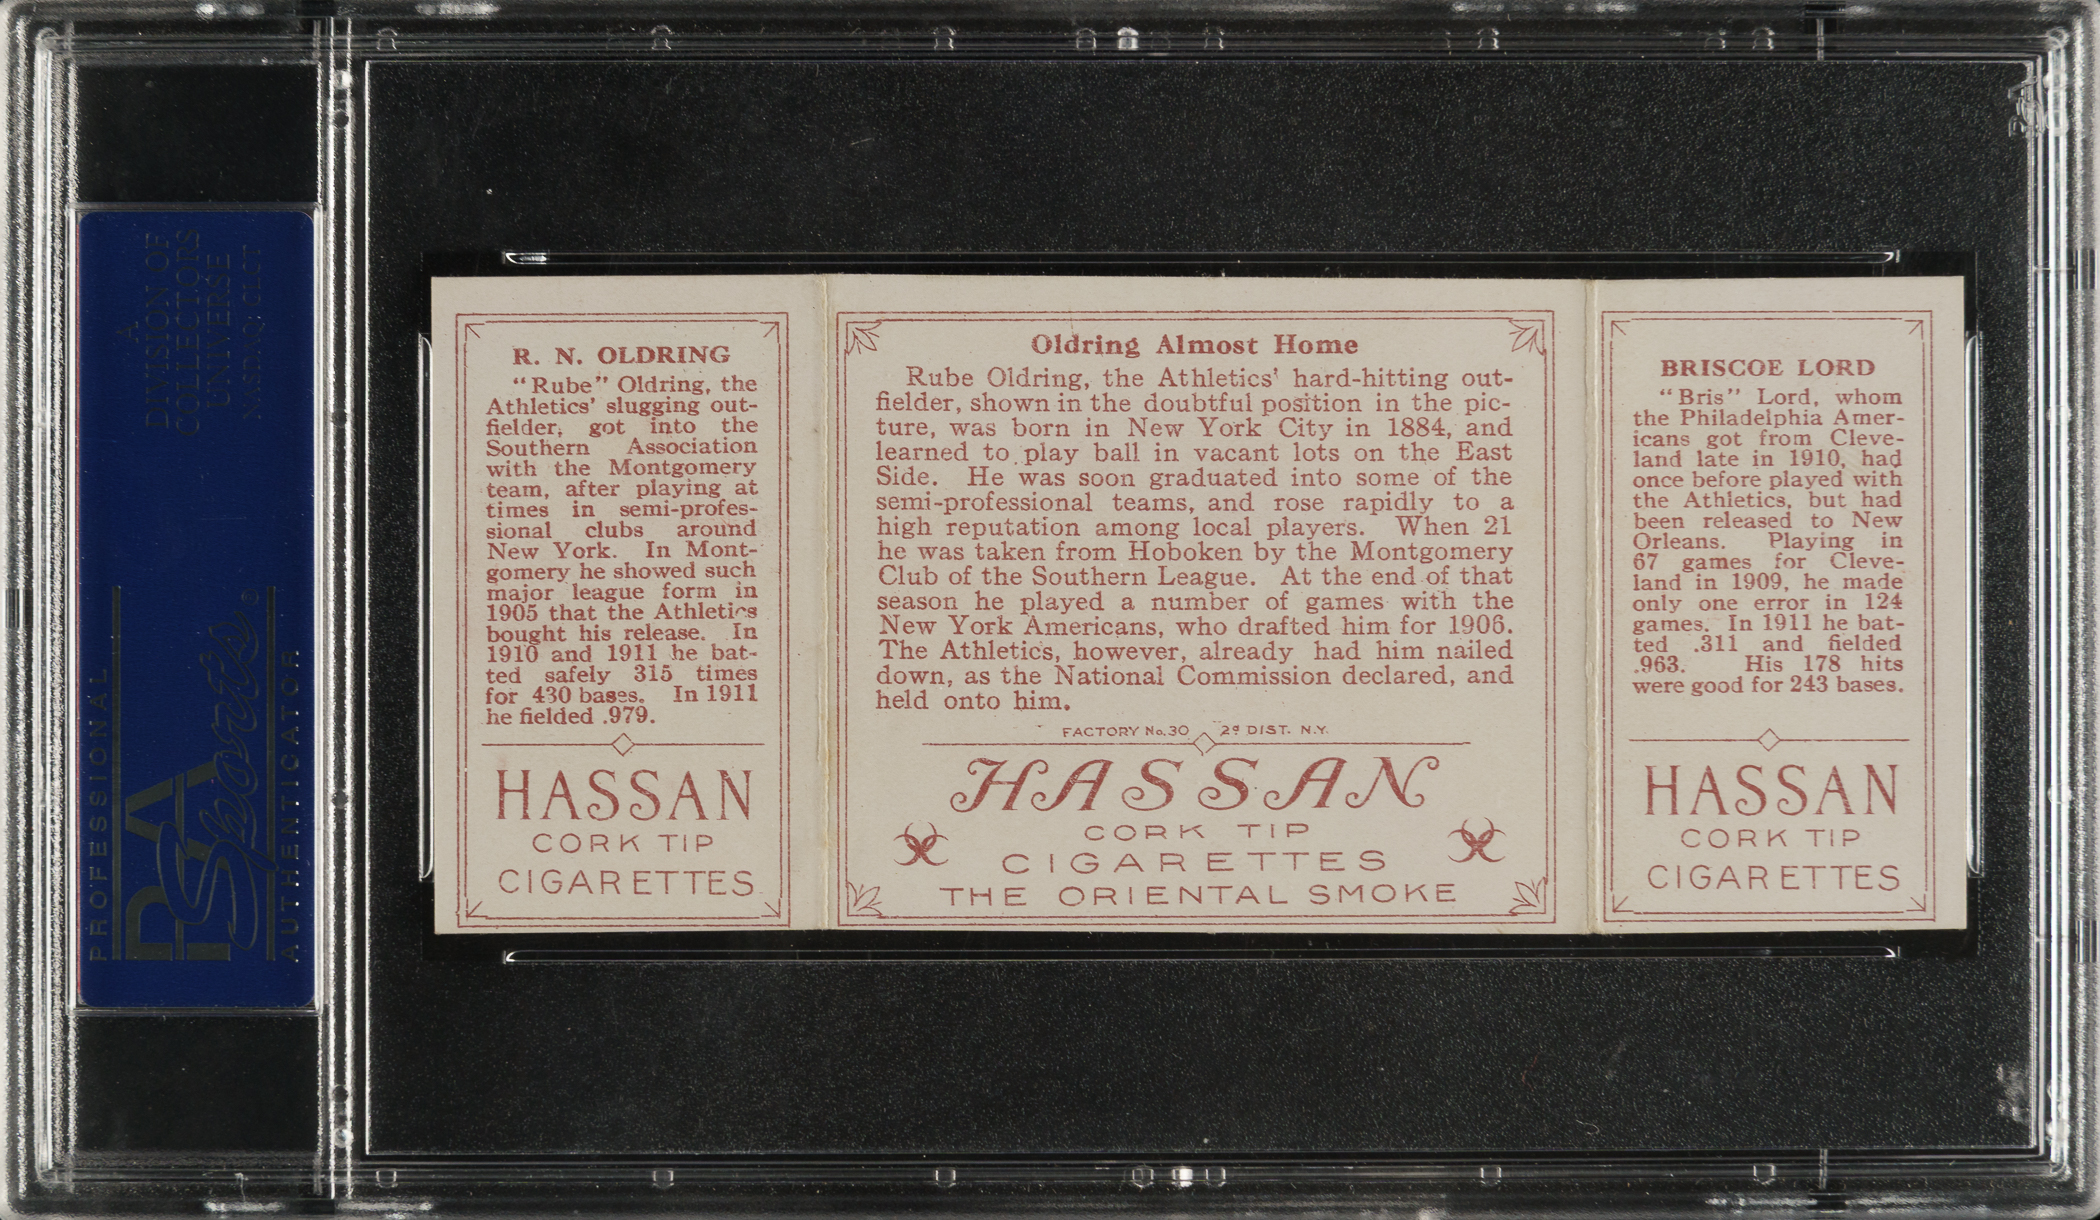 A
DIVISION OF
COLLECTORS
UNIVERSE
NASDAQ: CLCT
PROFESSIONAL
PSA
Sports®
AUTHENTICATOR
R. N. OLDRING
"Rube" Oldring, the
Athletics' slugging out-
fielder, got into the
Southern Association
with the Montgomery
team, after playing at
times in semi-profes-
sional clubs around
New York. In Mont-
gomery he showed such
major league form in
1905 that the Athletics
bought his release. In
1910 and 1911 he bat-
ted safely 315 times
for 430 bases. In 1911
he fielded .979.
HASSAN
CORK TIP
CIGARETTES
Oldring Almost Home
Rube Oldring, the Athletics' hard-hitting out-
fielder, shown in the doubtful position in the pic-
ture, was born in New York City in 1884, and
learned to play ball in vacant lots on the East
Side. He was soon graduated into some of the
semi-professional teams, and rose rapidly to a
high reputation among local players. When 21
he was taken from Hoboken by the Montgomery
Club of the Southern League. At the end of that
season he played a number of games with the
New York Americans, who drafted him for 1906.
The Athletics, however, already had him nailed
down, as the National Commission declared, and
held onto him.
FACTORY No. 30 2d DIST. N.Y.
HASSAN
CORK TIP
CIGARETTES
THE ORIENTAL SMOKE
BRISCOE LORD
"Bris" Lord, whom
the Philadelphia Amer-
icans got from Cleve-
land late in 1910, had
once before played with
the Athletics, but had
been released to New
Orleans. Playing in
67 games for Cleve-
land in 1909, he made
only one error in 124
games. In 1911 he bat-
ted .311 and fielded
.963. His 178 hits
were good for 243 bases.
HASSAN
CORK TIP
CIGARETTES